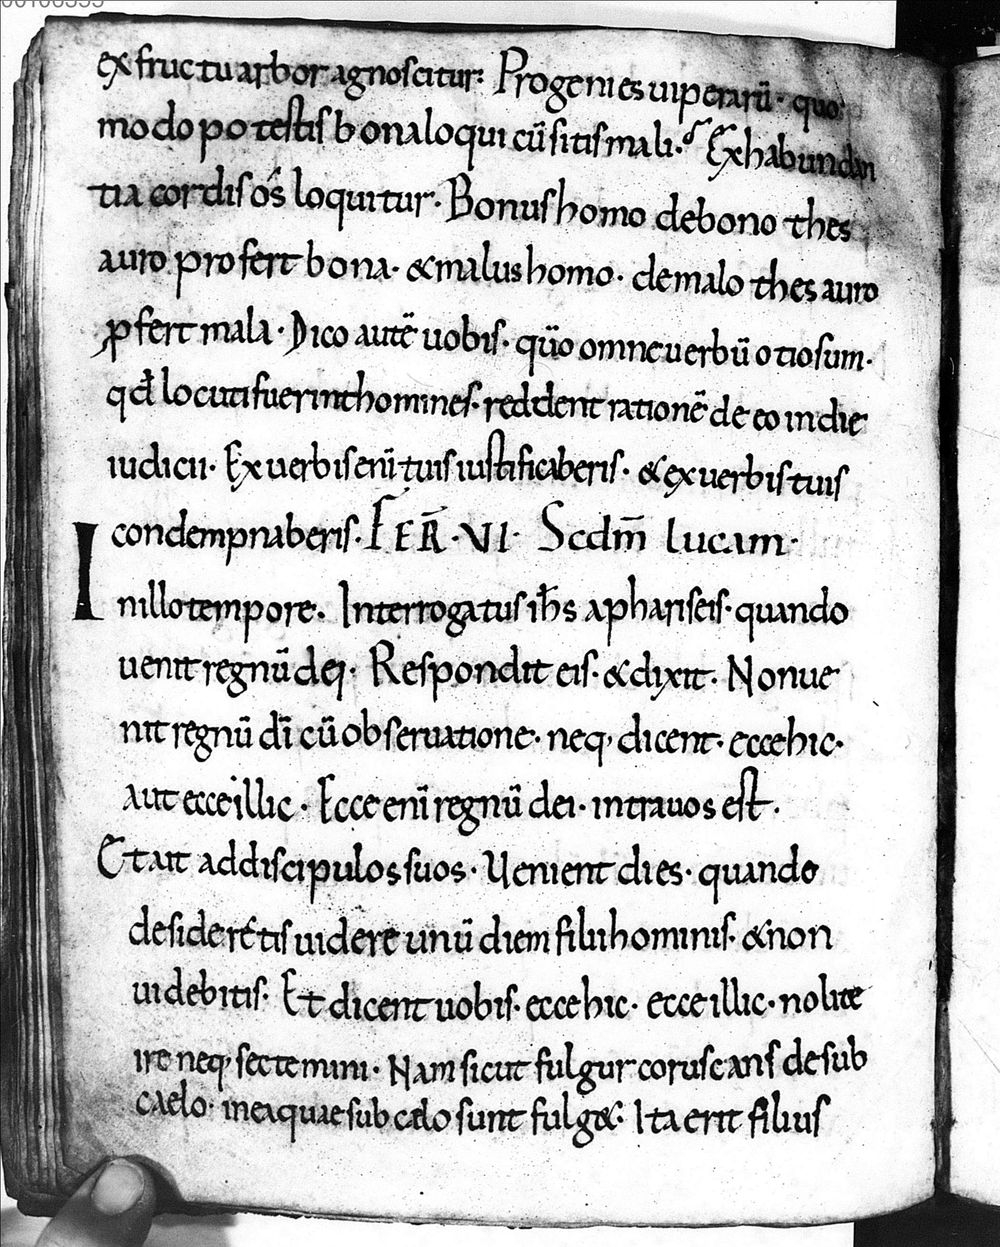 ex fructu arbor agnoscitur: Progenies uiperarū· quo
modo potestis bona loqui cū sitis mali· Ex habundan
tia cordis os loquitur· Bonus homo de bono thes
auro profert bona· & malus homo· de malo thesauro
ꝓfert mala· Dico autē uobis· qūo omne uerbū otiosum·
qđ locuti fuerint homines· reddent rationē de eo in die
iudicii· Ex uerbis enī tuis iustificaberis· & ex uerbis tuis
condempnaberis· FER̄·VI· Scdm̄ lucam·
In illo tempore· Interrogatus ihs̄ a phariseis· quando
uenit regnū dei· Respondit eis· & dixit· Non ue
nit regnū dī cū obseruatione· neq; dicent· ecce hic·
aut ecce illic· Ecce enī regnū dei· intra uos est·
Et ait ad discipulos suos· Uenient dies· quando
desideretis uidere unū diem filii hominis· & non
uidebitis· Et dicent uobis· ecce hic· ecce illic· nolite
ire neq; sectemini· Nam sicut fulgur coruscans de sub
caelo· in ea quae sub cęlo sunt fulg&· Ita erit filius